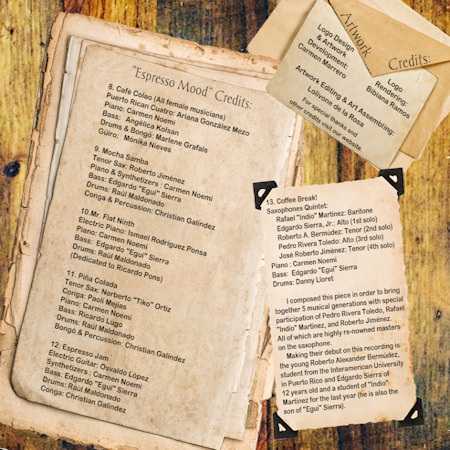 "Espresso Mood" Credits:
8. Café Colao (All female musicians)
Puerto Rican Cuatro: Ariana González Mezo
Piano: Carmen Noemi
Bass: Angélica Kolsan
Drums & Bongó: Marlene Grafals
Güiro: Monika Nieves
9. Mocha Samba
Tenor Sax: Roberto Jiménez
Piano & Synthetizers : Carmen Noemi
Bass: Edgardo "Egui" Sierra
Drums: Raúl Maldonado
Conga & Percussion: Christian Galíndez
10.Mr. Flat Ninth
Electric Piano: Ismael Rodríguez Ponsa
Piano: Carmen Noemi
Bass: Edgardo "Egui" Sierra
Drums: Raúl Maldonado
(Dedicated to Ricardo Pons)
11. Piña Colada
Tenor Sax: Norberto "Tiko" Ortiz
Conga: Paoli Mejías
Piano: Carmen Noemi
Bass: Ricardo Lugo
Drums: Raúl Maldonado
Bongó & Percussion: Christian Galíndez
12. Espresso Jam
Electric Guitar: Osvaldo López
Synthetizers : Carmen Noemi
Bass: Edgardo "Egui" Sierra
Drums: Raúl Maldonado
Conga: Christian Galíndez
Artwork Credits:
Logo Design
& Artwork
Development:
Carmen Marrero
Logo
Rendering:
Bibiana Ramos
Artwork Editing & Art Assembling:
Lolivone de la Rosa
For special thanks and
other credits visit our website
13. Coffee Break!
Saxophones Quintet:
Rafael "Indio" Martínez: Baritone
Edgardo Sierra, Jr.: Alto (1st solo)
Roberto A. Bermúdez: Tenor (2nd solo)
Pedro Rivera Toledo: Alto (3rd solo)
José Roberto Jiménez: Tenor (4th solo)
Piano : Carmen Noemi
Bass: Edgardo "Egui" Sierra
Drums: Danny Lloret
I composed this piece in order to bring
together 5 musical generations with special
participation of Pedro Rivera Toledo, Rafael
"Indio" Martínez, and Roberto Jiménez.
All of which are highly re-nowned masters
on the saxophone.
Making their debut on this recording is
the young Roberto Alexander Bermúdez,
student from the Interamerican University
in Puerto Rico and Edgardo Sierra of
12 years old and a student of "Indio"
Martínez for the last year (he is also the
son of "Egui" Sierra).